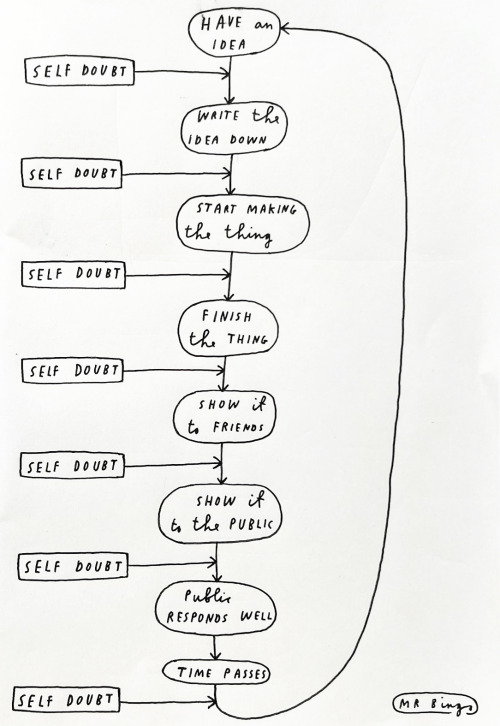 HAVE an
IDEA
SELF DOUBT
WRITE the
IDEA DOWN
SELF DOUBT
START MAKING
the thing
SELF DOUBT
FINISH
the THING
SELF DOUBT
SHOW it
to FRIENDS
SELF DOUBT
SHOW it
to the PUBLIC
SELF DOUBT
Public
RESPONDS WELL
TIME PASSES
SELF DOUBT
MR Bingo